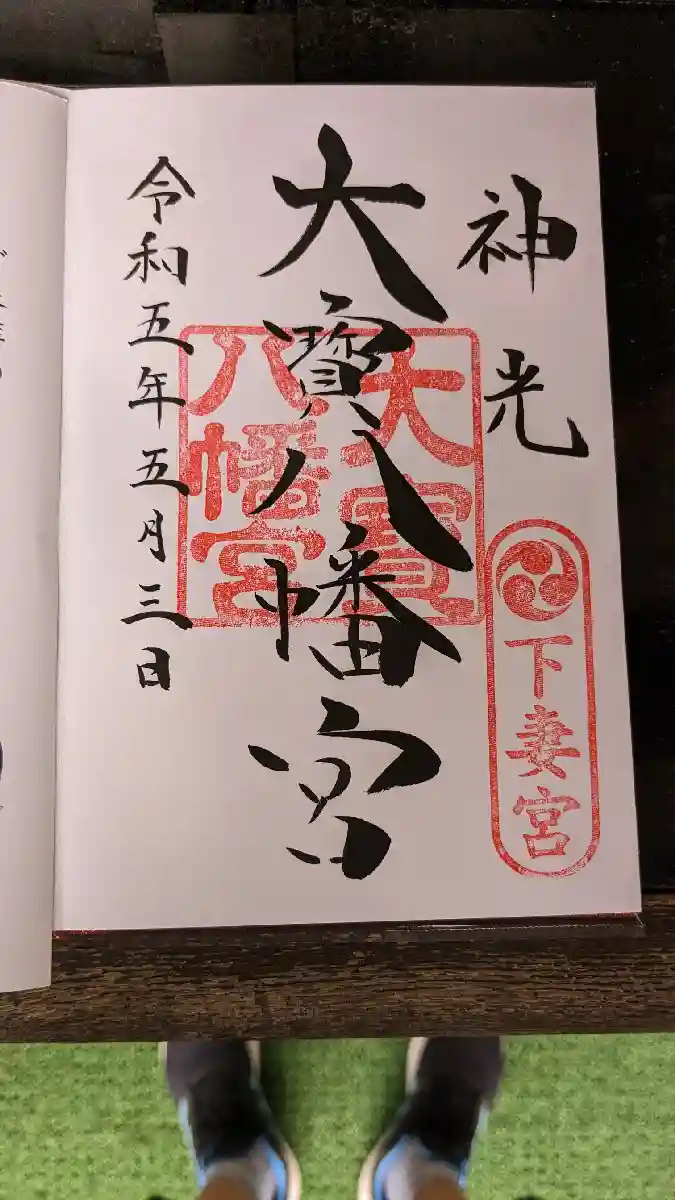 神光
下妻宮
大寳八幡宮
大寳八幡宮
令和五年五月三日